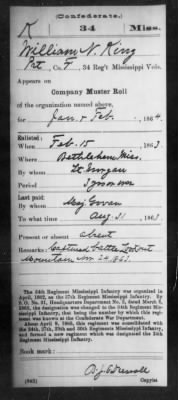 (Confederate.)
K 34 Miss.
William N. King
Pvt, Co. F, 34 Reg't Mississippi Vols.
Appears on
Company Muster Roll
of the organization named above,
for Jan & Feb, 1864.
Enlisted:
When Feb. 15, 1863
Where Bethlehem Miss.
By whom Lt.
Period
Last paid:
By whom Maj. Govan
To what time Aug 31, 1863
Present or absent absent
Remarks: Captured battle Lookout
Mountain Nov 24, 1863.
The 34th Regiment Mississippi Infantry was organized in
April, 1862, as the 37th Regiment Mississippi Infantry. By
S. O. No. 57, Headquarters Department No. 2, dated March 5,
1863, the designation was changed to the 34th Regiment Mis-
sissippi Infantry, that being the number by which this regi-
ment was known at the Confederate War Department.
About April 9, 1865, this regiment was consolidated with
the 24th, 27th, 29th and 30th Regiments Mississippi Infantry,
and formed a new regiment which was designated the 24th
Regiment Mississippi Infantry.
Book mark:
(642) Copyist.